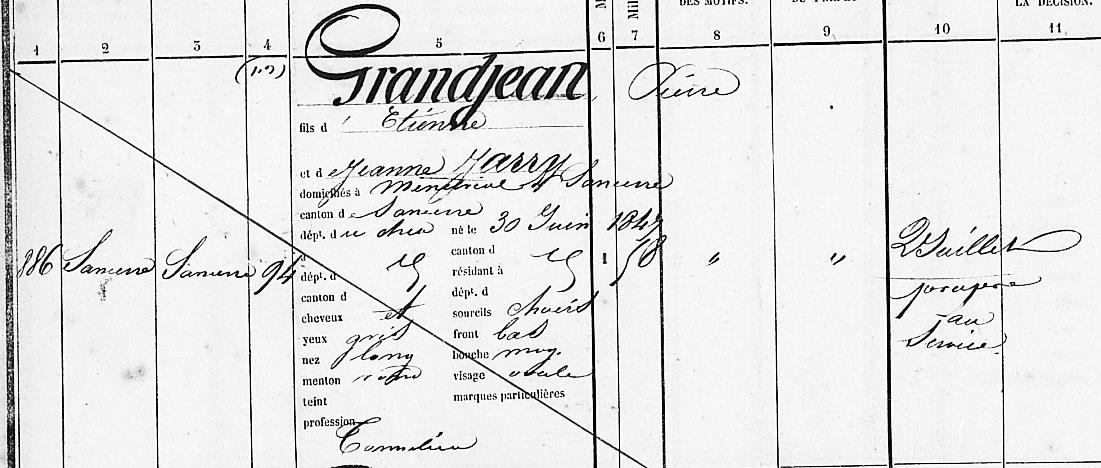 DES MOTIFS.
LA DÉCISION.
1 2 3 4 5 6 7 8 9 10 11
Grandjean Pierre
fils d' Etienne
et d e Jeanne Marry
domiciliés à Sancerre
canton de Sancerre
dépt. d u cher né le 30 Juin 1847
886 Sancerre Sancerre 94 canton d 1 58 " " 2 Juillet
dépt. d résidant à
canton d dépt. d
cheveux et sourcils chât
yeux gris front bas
nez long bouche moy.
menton rond visage ovale
teint marques particulières
profession
Tonnelier
propre
au
Service.